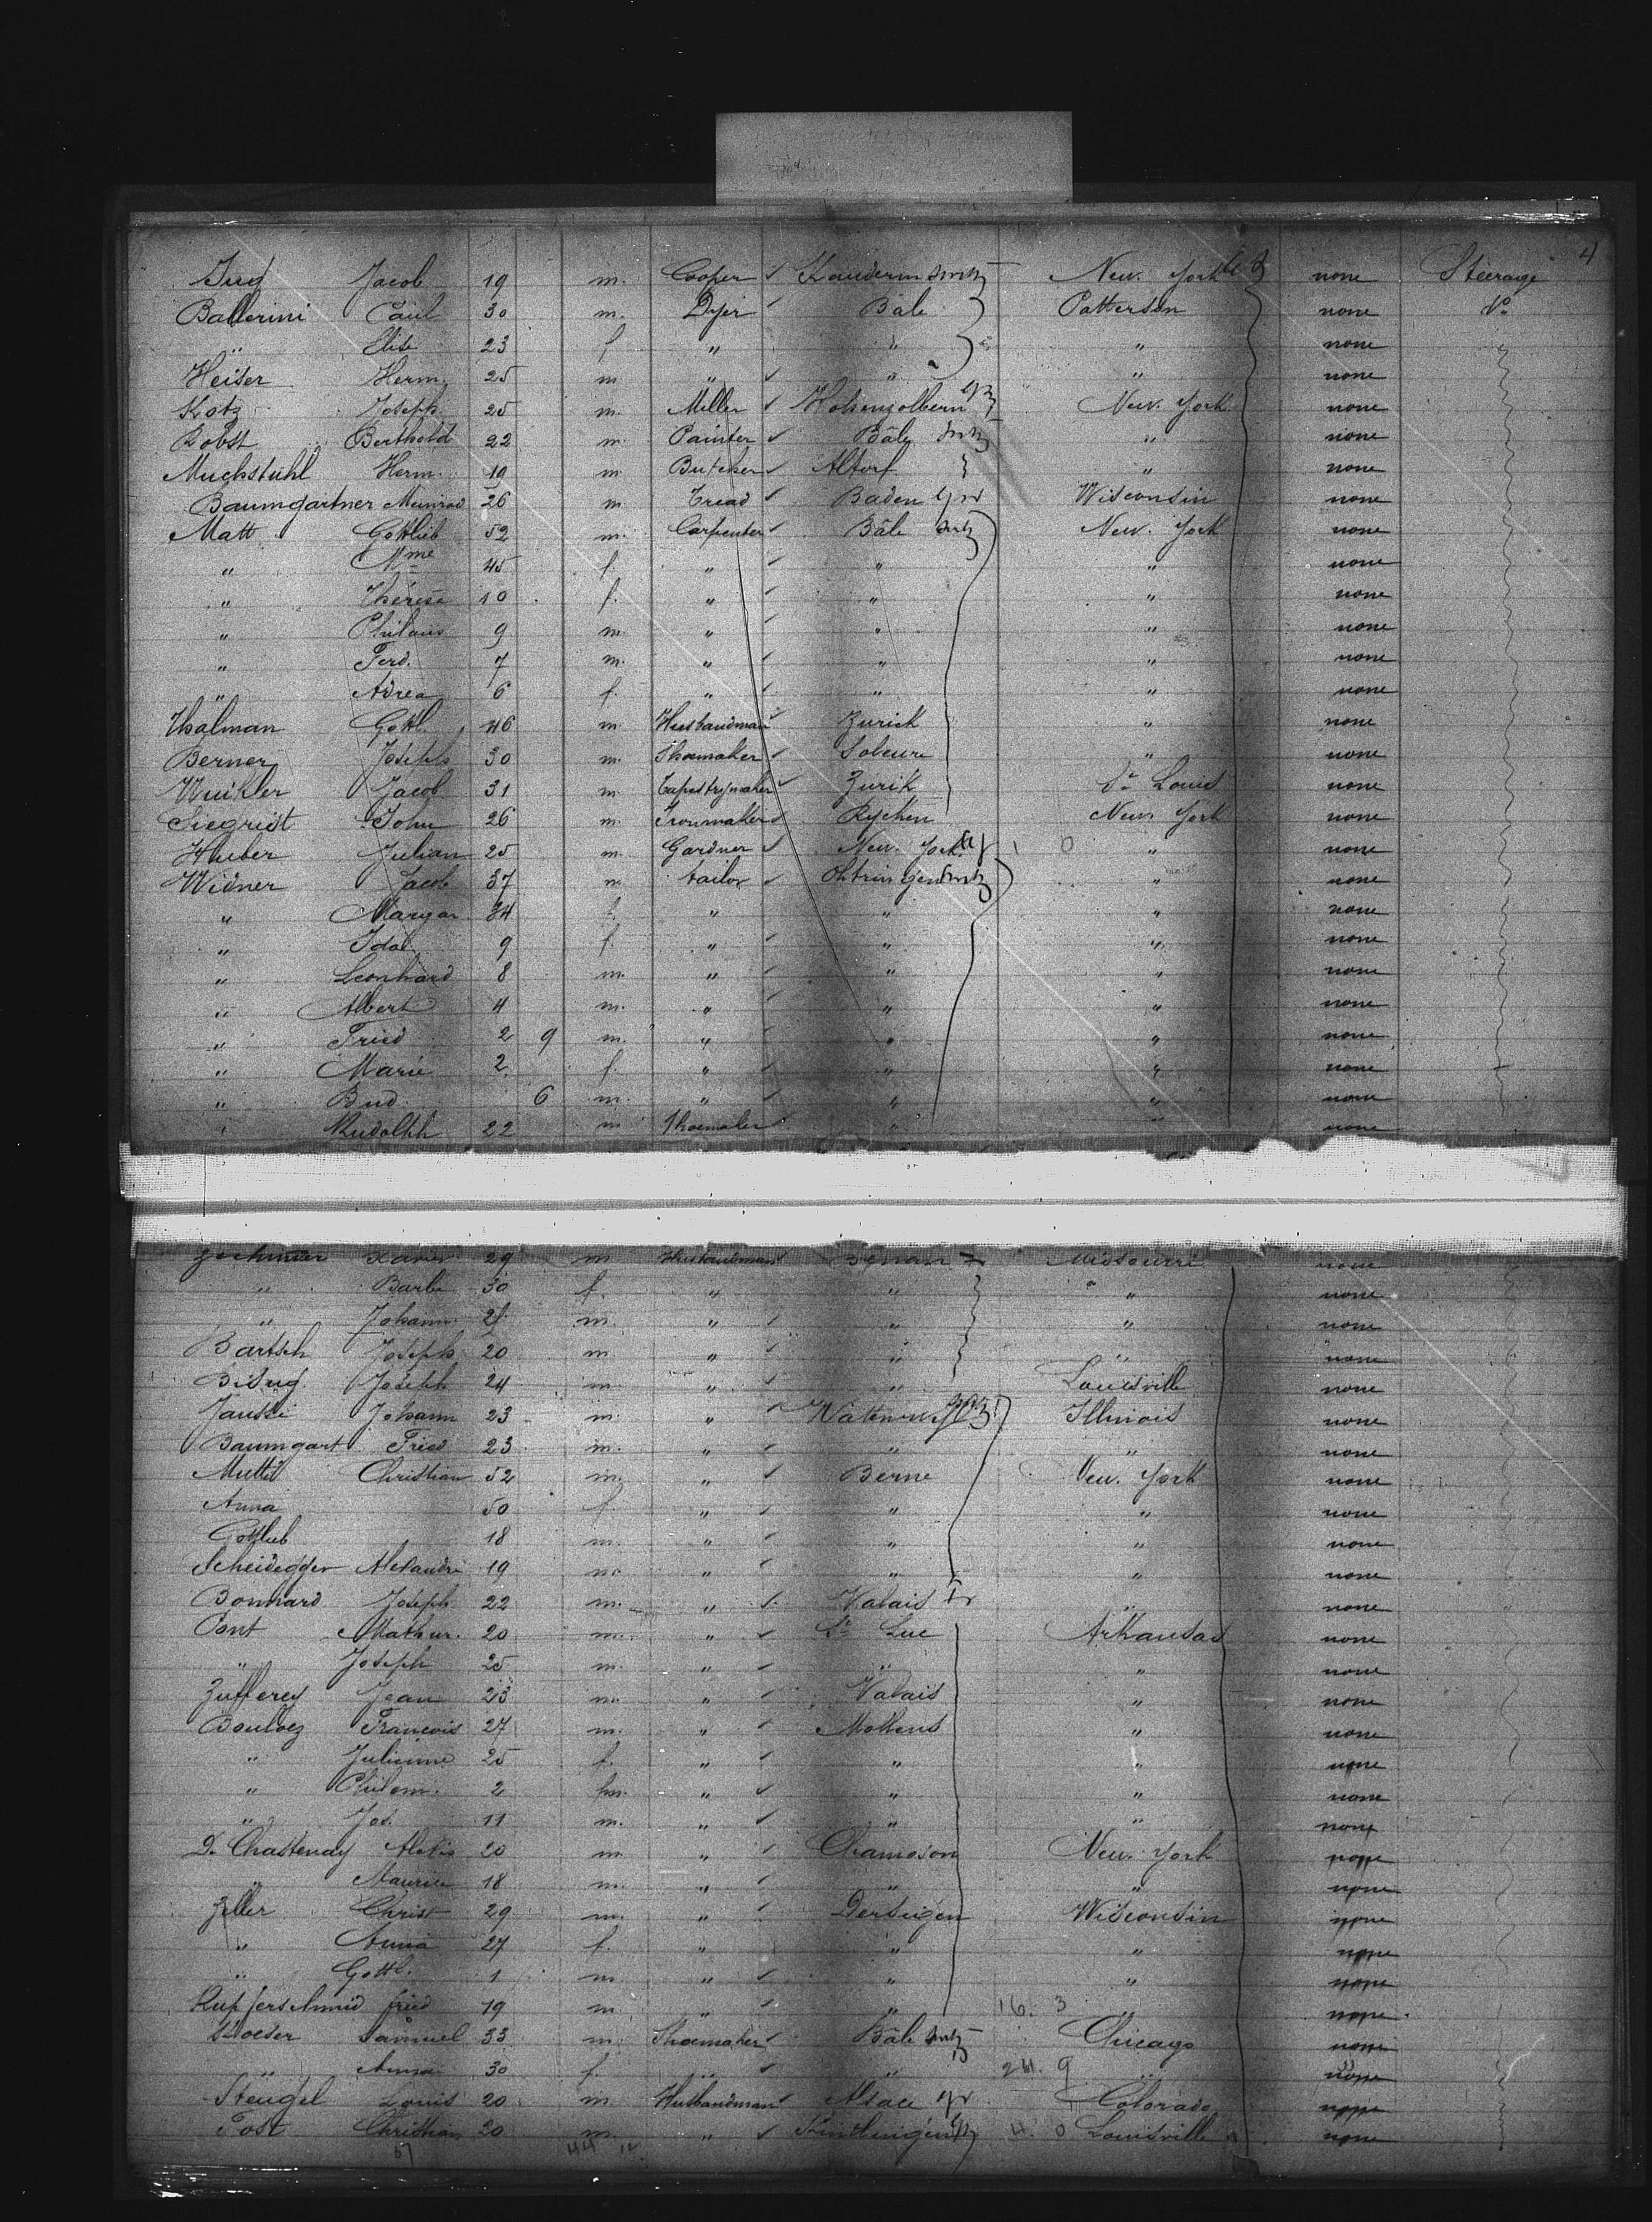 4
Jacob 19 m. Cooper New. York none Steerage
Ballerini Paul 30 m. Dyer Bâle Patterson none do
" Elise 23 f " " " none
Heiser Herm. 25 m " " " none
Kotz Joseph. 25 m. Miller Hohenzollern New. York none
Robst Berthold 22 m. Painter Bâle " none
Muckstuhl Herm. 19 m. Butcher Altorf " none
Baumgartner Meinrad 26 m Baden Wisconsin none
Matt Gottlieb 52 m. Carpenter Bâle New. York none
" Mme 45 f. " " " none
" Thérèse 10 f. " " " none
" 9 m. " " " none
" Ferd. 7 m. " " " none
" 6 f. " " " none
Thalman Gottl. 46 m. Husbandman Zurich " none
Berner Joseph 30 m. Shoemaker Soleure " none
Jacob 31 m. Tapestrymaker Zurik St Louis none
Siegrist John 26 m. Rychen New. York none
Huber Julian 25 m. Gardner New. York 0 " none
Widner Jacob 37 m. tailor " none
" Margar. 34 f. " " " none
" Ida 9 f. " " " none
" Leonhard 8 m. " " " none
" Albert 4 m. " " " none
" Fried 2 9 m. " " " none
" Marie 2 f. " " " none
" 6 m. " " " none
" Rudolph 22 m Shoemaker " " none
Xavier 29 m Husbandman Missouri none
" Barbe 30 f. " " " none
" Johann m. " " " none
Bartsch Joseph 20 m. " " " none
Joseph 24 m " " Louisville none
Jaussi Johann 23 m. " Illinois none
Baumgart Fried 23 m. " " " none
Christian 52 m. " Berne New. York none
Anna 50 f " " " none
Gottlieb 18 m. " " " none
Scheidegger Alexandre 19 m " " " none
Bonnard Joseph 22 m. " Valais " none
Pont Mathur. 20 m. " St Luc Arkansas none
" Joseph 25 m. " " " none
Zufferey Jean 23 m. " Valais " none
François 27 m. " Mollens " none
" Julienne 25 f. " " " none
" Philom. 2 m. " " " none
" Jos. 11 m. " " " none
D. Chastenay Alexis 20 m. " Chamoson New. York none
" Maurice 18 m. " " " none
Zeller Christ 29 m. " Wisconsin none
" Anna 27 f. " " " none
" Gottl. 1 m. " " " none
Kupferschmid fried 19 m. " " 16. 3 none
Samuel 33 m. Shoemaker Bâle Chicago none
" Anna 30 f. " " 24. 9 " none
Stengel Louis 20 m. Husbandman Alsace Colorado none
Christian 20 m. " 4. 0 Louisville none
44 12